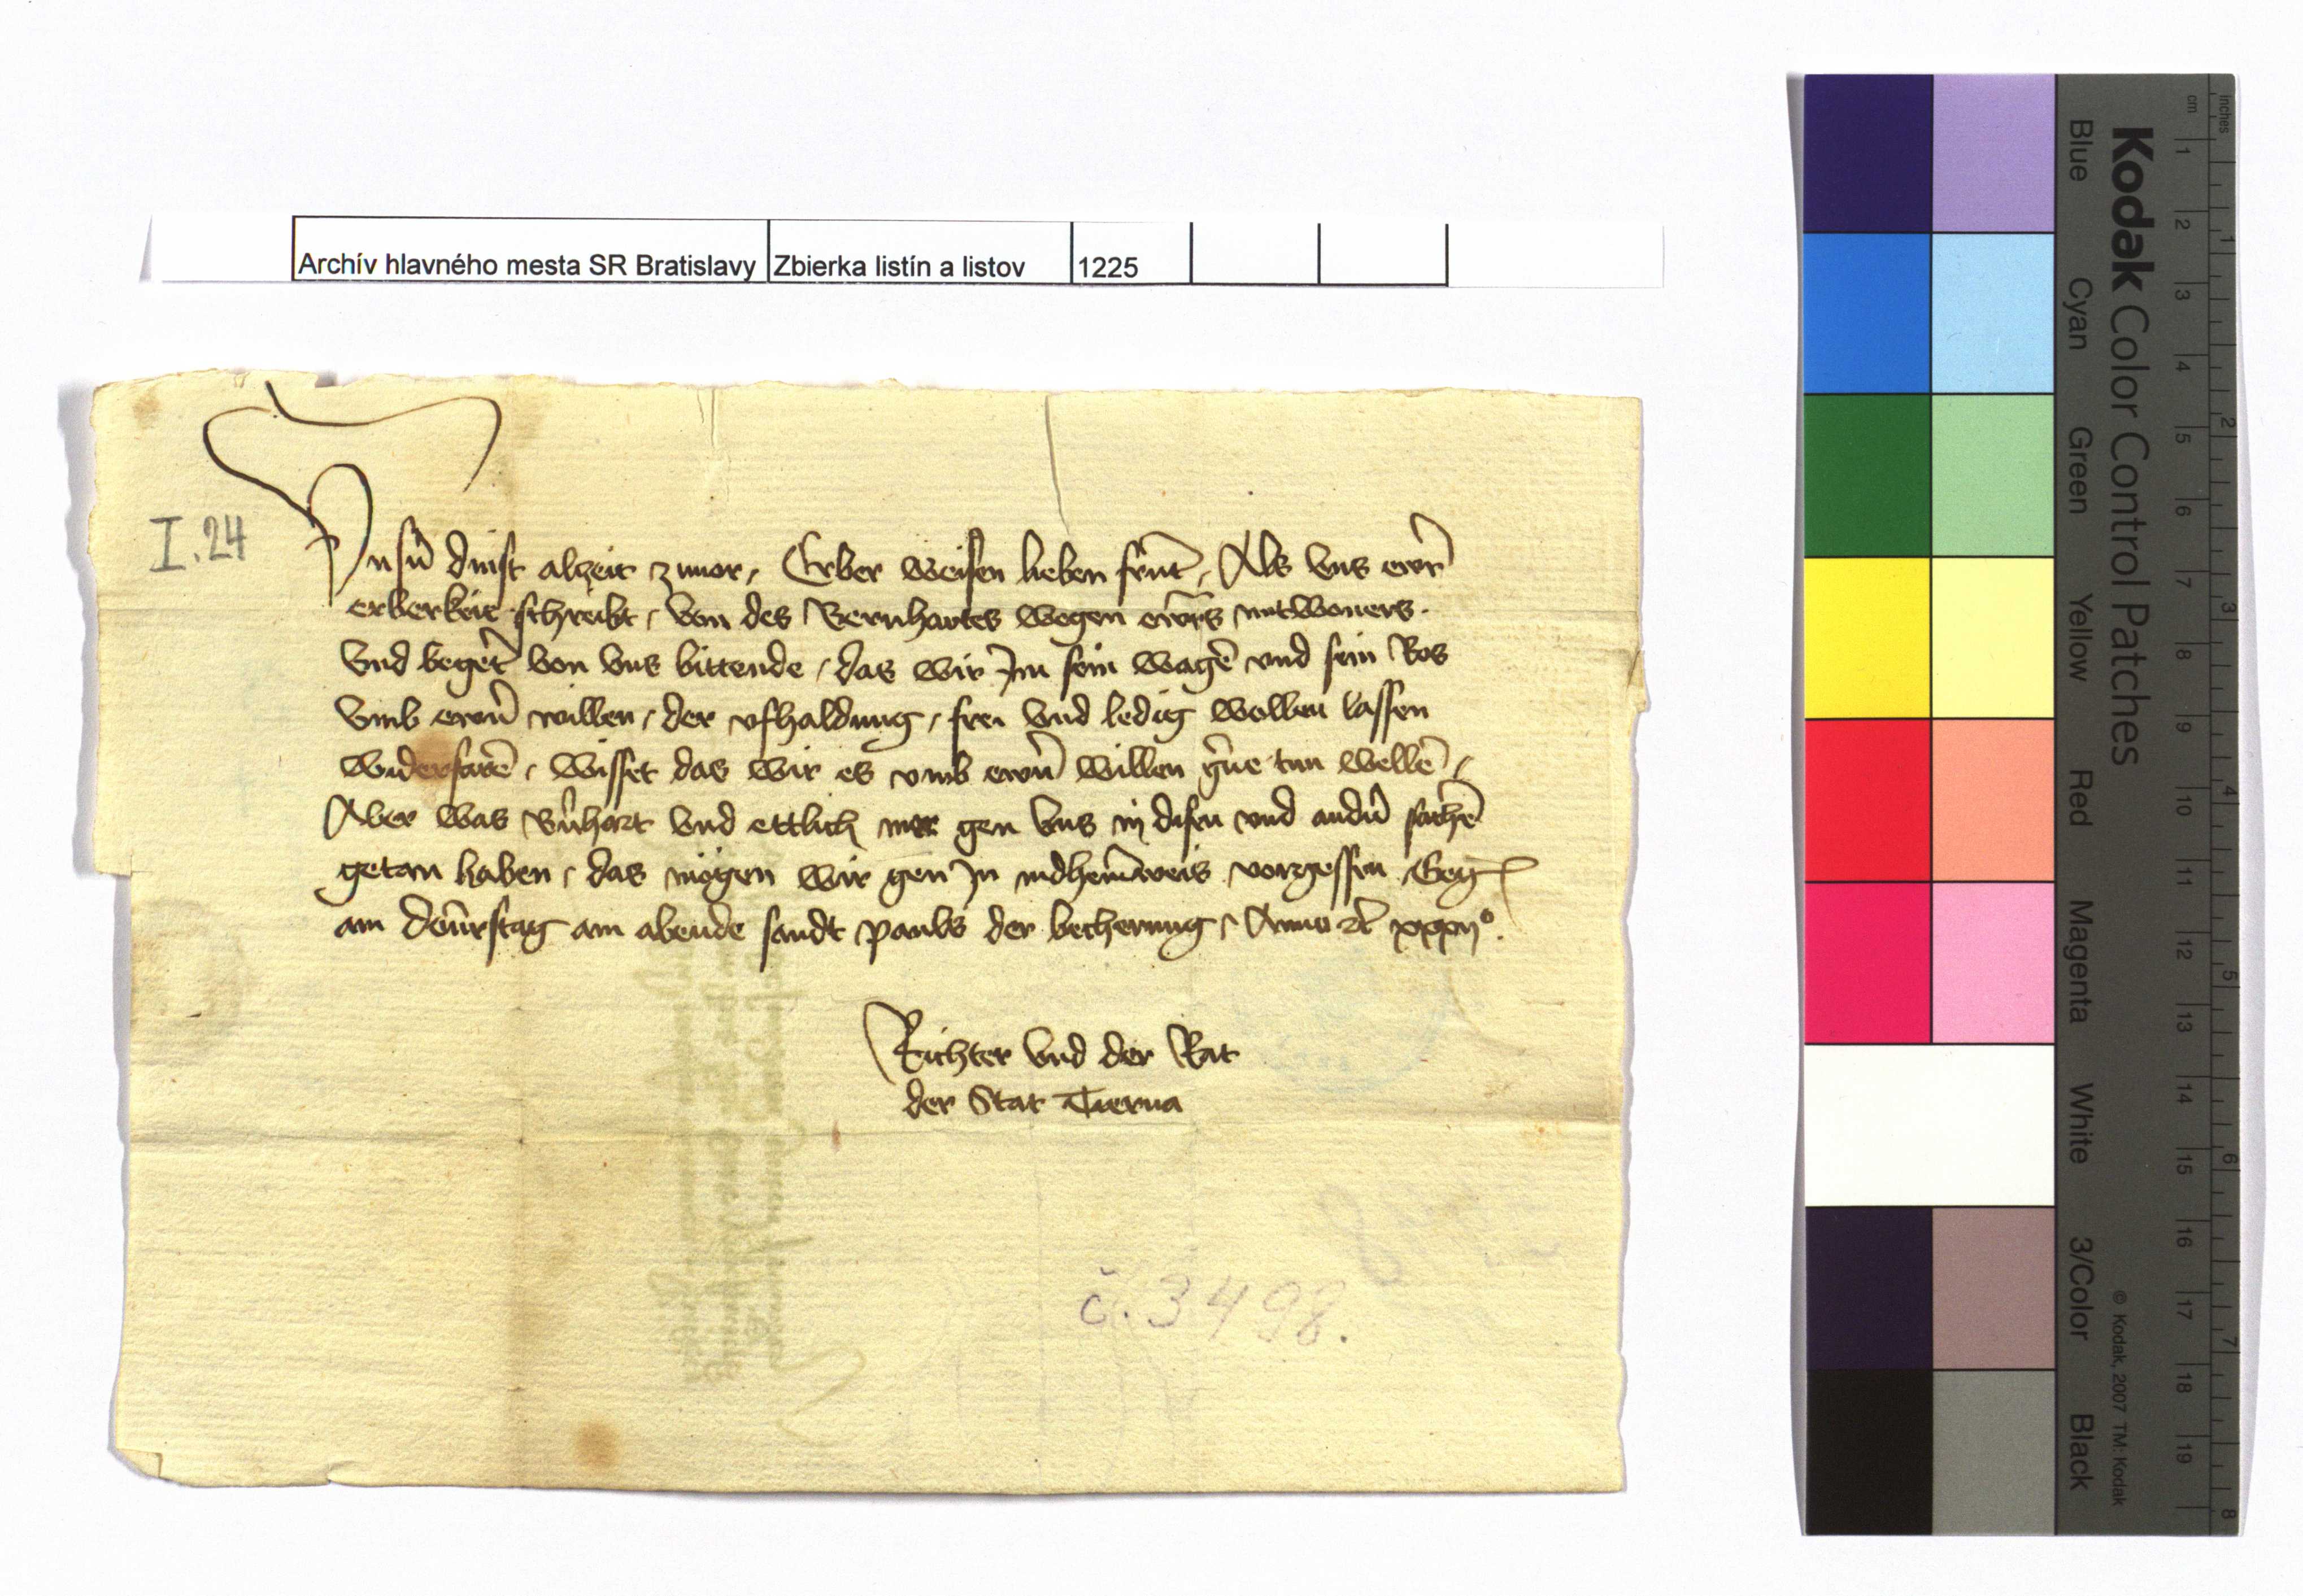 Archív hlavného mesta SR Bratislavy Zbierka listín a listov 1225
I.24
Vnsn̄ dinst alzeit zuuor, Erber weisen lieben frūt, Als vns ewr̄
erberkeit schreibt, von des Bernhartes wegen ewr̄s mitwoners.
Vnd begert̄ von vns bittende, das wir Jm sein wagē vnd sein Ros
vmb ewrn̄ willen, der vfhaldung, frei vnd ledig wollen lassen
widerfarē, wisset das wir es vmb ewrn̄ willen gn̄e tun wellē,
Aber was Bn̄hart vnd ettlich mer gen vns in disen vnd andn̄ sachē
getan haben, das mögen wir gen Jn nidhein̄weis vorgessen Geg
am don̄rstag am abende sandt pauls der becherung, Anno rc̄ xxxij°.
Richter vnd der Rat
der Stat Tierna
č. 3498.
Kodak Color Control Patches
© Kodak, 2007 TM: Kodak
Blue Cyan Green Yellow Red Magenta White 3/Color Black
cm 1 2 3 4 5 6 7 8 9 10 11 12 13 14 15 16 17 18 19
Inches 1 2 3 4 5 6 7 8